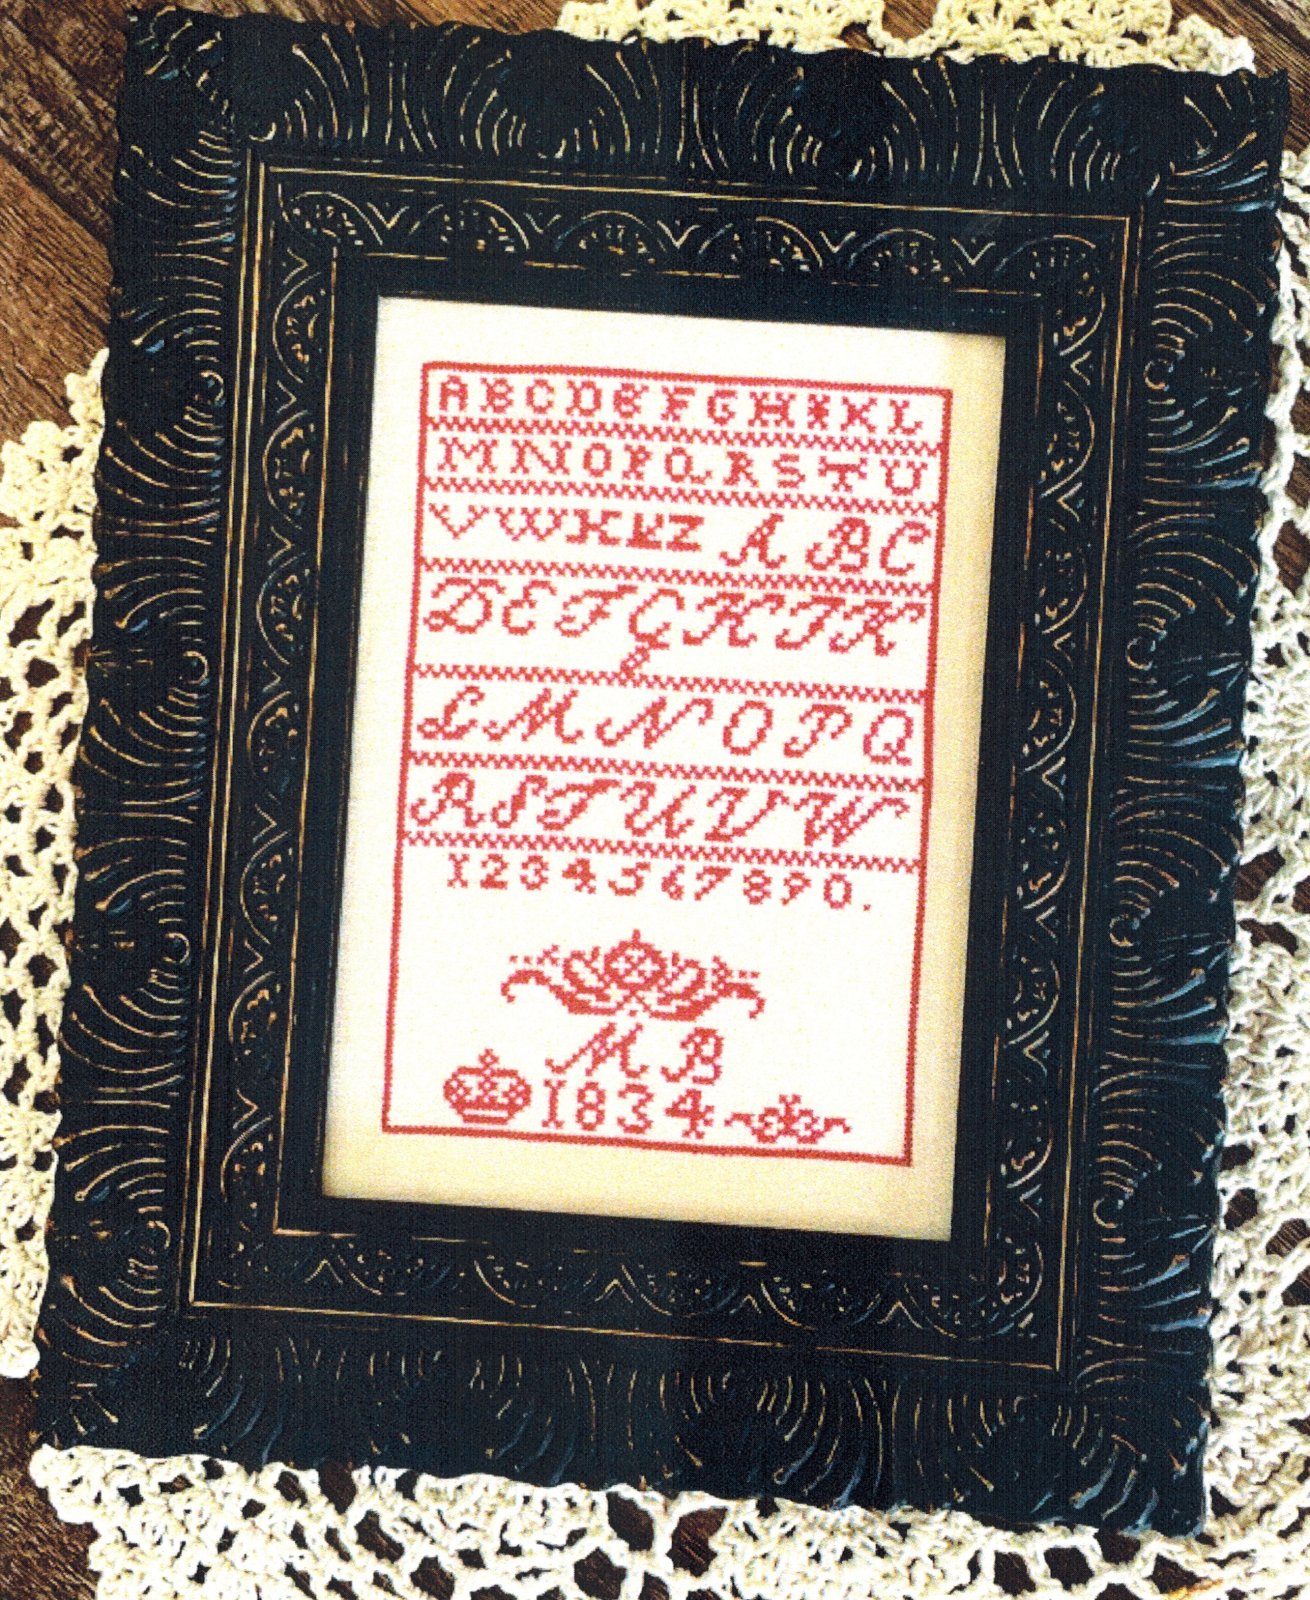 A B C D E F G H I K L
M N O P Q R S T U
V W X Y Z A B C
D E F G H I K
L M N O P Q
R S T U V W
1 2 3 4 5 6 7 8 9 0.
M B
1834